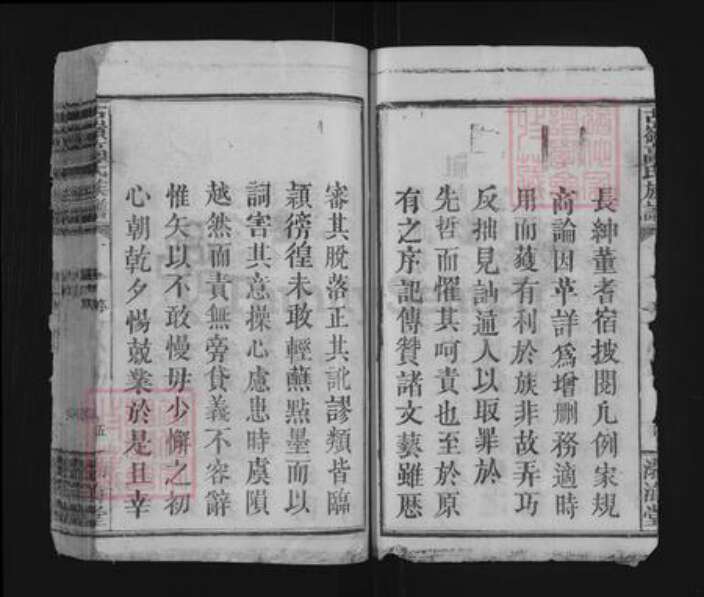 長紳董耆宿披閱凢例家規
商論因革詳爲增删務適時
用而薿有利於族非故弄巧
反拙見訕通人以取罪於
先哲而懼其呵責也至於原
有之序記傳贊諸文藝雖歴
審其脫落正其訛謬類皆臨
穎徬徨未敢輕蘸點墨而以
詞害其意操心慮患時虞隕
越然而責無旁貸義不容辭
惟矢以不敢慢毋少懈之初
心朝乾夕惕兢業於是且幸
氏族譜
五
堂